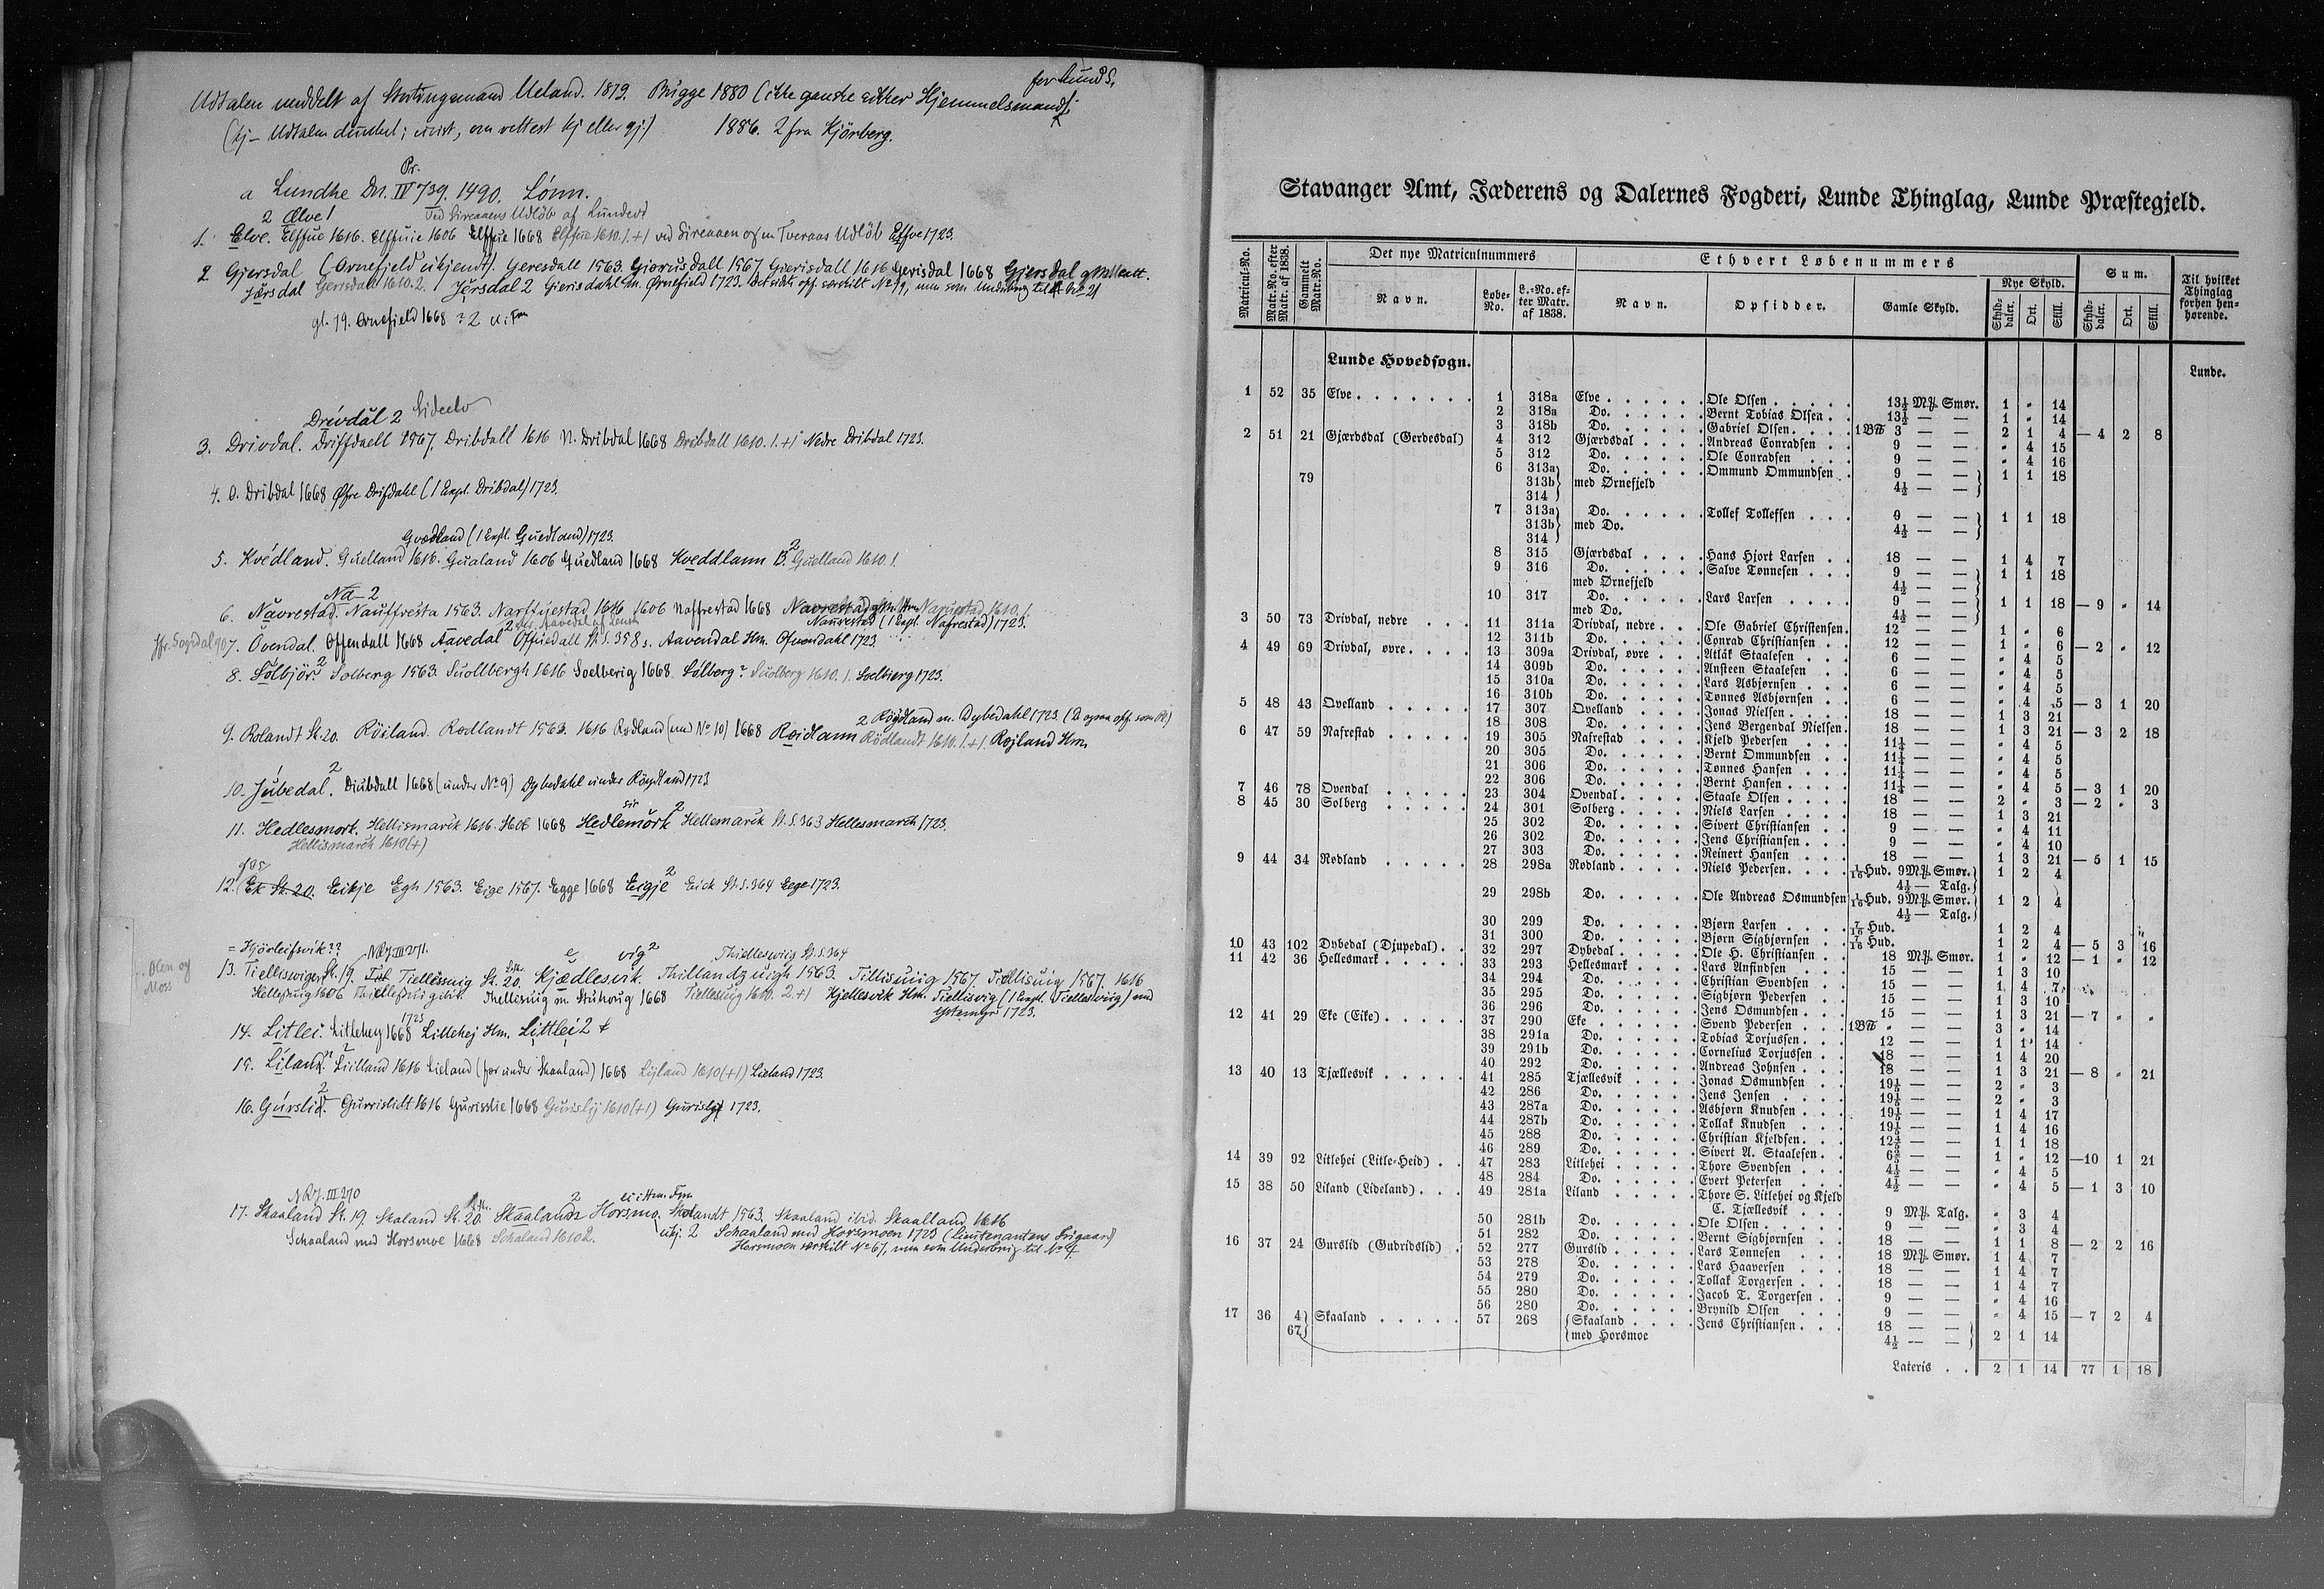 for Lunds.
Udtalen meddelt af Stortingsmand Ueland. 1879. Brügge 1880 (ikke ganske sikker Hjemmelsmand);
(kj – Udtalen dunkel; uvist, om rettest kj eller gj) 1886. 2 fra Kjörberg.
Pr.
a Lundhe Dn. IV 739. 1490. Lónn.
2 Ælve!
Ved Sireaaens Udlöb af Lundevd
1. Elve. Elffue 1616. Elffuie 1606 Elffue 1668 Elffue 1610. 1. +1 ved Sireaaen Udlöb Elfve 1723.
2 Gjersdal (Ørnefjeld ukjendt). Geresdall 1563. Giorusdall 1567. Gierisdall 1616 Gerisdal 1668 Giersdal
Jærsdal Gerisdall 1610. 2. Jérsdal 2 Gierisdahl m. Ørnefield 1723.
gl. 79. Ornefield 1668
Drívdål 2
3. Drivdal. Driffdaell 1567. Dribdall 1616 N. Dribdal 1668 Dribdall 1610. 1. +1 Nedre Dribdal 1723.
4. O. Dribdal 1668 Øfre Drifdahl (1 Expl. Dribdal) 1723.
Gvædland (1 Expl. Guedland) 1723.
5. Kvédland. Guelland 1616. Gualand 1606 Guedland 1668 Kveddlann Guelland 1610. 1.
Nå– 2
6. Nåvrestad. Nauffresta 1563. 1606 Naffrestad 1668
Naurestad (1 Expl. Nafrestad) 1723.
7. Övendal. Offendall 1668 Aavedal Offuedall St. S. 358 s. Aavendal Hm. Ofvendahl 1723
8. Sólbjör. Solberg 1563. Suollbergh 1616 Soelberig 1668. Sólborg? Suolberg 1610. 1. Soelbierg 1723.
2 Röydland m. Dybedahl 1723.
9. Rolandt St. 20. Röiland. Rodlandt 1563. 1616 Rødland (med No 10) 1668 Roidlann Rödlandt 1610. 1. +1 Rojland Hm.
10. Júbedal. Diubdall 1668 (under No 9) Dybedahl under Röydland 1723
11. Hedlesmork. Hellismarck 1616. 1668 Hedlemörk Hellemarck St. S. 363 Hellesmarch 1723.
Hellismarch 1610 (+)
12. Ek St. 20. Eikje Egh 1563. Eige 1567. Egge 1668 Eigje Eick St. S. 364 Eege 1723.
= Hjörleifsvík?? NRJ. III 271. Thielleswiig St. S. 364
13. Tielleswiger St. 19. Tiellessuig St. 20. Kjædlesvik. 1563. Tillisuiig 1567. 1616
Kjellesvik Hm. Tiellisvig
1723.
14. Litlei. Litlehey 1668 Lillehej Hm. Littlei 2
15. Líland. Liilland 1616 Lieland (for under Skaaland) 1668 Lijland 1610 (+1) Lieland 1723.
16. Gúrslid. Gurrislidt 1616 Gurisslie 1668 Gurislij 1610 (+1) 1723.
NRJ. III 270
17. Skaaland St. 19. Skaland St. 20. Skåaland Horsmo. Skolandt 1563. Skaaland ibid. Skaalland 1616
Schaaland med Horsmoe 1668 Schaland 1610 2. Schaaland med Horsmoen 1723
Horsmoen særskilt No 67, men som Underbrug til No 4
Stavanger Amt, Jæderens og Dalernes Fogderi, Lunde Thinglag, Lunde Præstegjeld.
Matricul-No.
Matr.-No. efter Matr. af 1838.
Gammelt Matr.-No.
Det nye Matriculnummers
Navn.
Løbe-No.
Ethvert Løbenummers
L.-No. efter Matr. af 1838.
Navn.
Opsidder.
Gamle Skyld.
Nye Skyld.
Skylddaler. Ort. Skill.
Sum.
Skylddaler. Ort. Skill.
Til hvilket Thinglag forhen henhørende.
Lunde Hovedsogn.
Lunde.
1 52 35 Elve 1 318a Elve Ole Olsen 13½ M℔ Smør. 1 " 14
2 318a Do. Bernt Tobias Olsen 13½ — — 1 " 14
3 318b Do. Gabriel Olsen 1 B℔ 3 — — 2 1 4 — 4 2 8
2 51 21 Gjærdsdal (Gerdesdal) 4 312 Gjærdsdal Andreas Conradsen 9 — — " 4 15
5 312 Do. Ole Conradsen 9 — — " 4 16
79 6 313a 313b 314 Do. med Ørnefjeld Ommund Ommundsen 9 — — 4½ — — 1 1 18
7 313a 313b 314 Do. med Do. Tollef Tollefsen 9 — — 4½ — — 1 1 18
8 315 Gjærdsdal Hans Hjort Larsen 18 — — 1 4 7
9 316 Do. med Ørnefjeld Salve Tønnesen 9 — — 4½ — — 1 1 18
10 317 Do. med Do. Lars Larsen 9 — — 4½ — — 1 1 18 — 9 " 14
3 50 73 Drivdal, nedre 11 311a Drivdal, nedre Ole Gabriel Christensen 12 — — 1 " 6
12 311b Do. Conrad Christiansen 12 — — 1 " 6 — 2 " 12
4 49 69 Drivdal, øvre 13 309a Drivdal, øvre Atlak Staalesen 6 — — " 4 5
14 309b Do. Ansteen Staalesen 6 — — " 4 5
15 310a Do. Lars Asbjørnsen 6 — — " 4 5
16 310b Do. Tønnes Asbjørnsen 6 — — " 4 5 — 3 1 20
5 48 43 Qvelland 17 307 Qvelland Jonas Nielsen 18 — — 1 3 21
18 308 Do. Jens Bergendal Nielsen 18 — — 1 3 21 — 3 2 18
6 47 59 Nafrestad 19 305 Nafrestad Kjeld Pedersen 11¼ — — " 4 5
20 305 Do. Bernt Ommundsen 11¼ — — " 4 5
21 306 Do. Tønnes Hansen 11¼ — — " 4 5
22 306 Do. Bernt Hansen 11¼ — — " 4 5 — 3 1 20
7 46 78 Ovendal 23 304 Ovendal Staale Olsen 18 — — 2 " 3 — 2 " 3
8 45 30 Solberg 24 301 Solberg Niels Larsen 18 — — 1 3 21
25 302 Do. Sivert Christiansen 9 — — " 4 11
26 302 Do. Jens Christiansen 9 — — " 4 10
27 303 Do. Reinert Hansen 18 — — 1 3 21 — 5 1 15
9 44 34 Rødland 28 298a Rødland Niels Pedersen 1/16 Hud. 9 M℔ Smør. 4½ — Talg. 1 2 4
29 298b Do. Ole Andreas Osmundsen 1/16 Hud. 9 M℔ Smør. 4½ — Talg. 1 2 4
30 299 Do. Bjørn Larsen 7/16 Hud. 1 2 4
31 300 Do. Bjørn Sigbjørnsen 7/16 Hud. 1 2 4 — 5 3 16
10 43 102 Dybedal (Djupedal) 32 297 Dybedal Ole H. Christiansen 18 M℔ Smør. 1 " 12 — 1 " 12
11 42 36 Hellesmark 33 293 Hellesmark Lars Ansindsen 15 — — 1 3 10
34 294 Do. Christian Svendsen 15 — — 1 4 7
35 295 Do. Sigbjørn Pedersen 15 — — 1 3 10
36 296 Do. Jens Osmundsen 15 — — 1 3 21 — 7 " "
12 41 29 Eke (Eike) 37 290 Eke Svend Pedersen 1 B℔ " — — 3 " 14
38 291a Do. Tobias Torjussen 12 — — 1 1 14
39 291b Do. Cornelius Torjussen 18 — — 1 4 20
40 292 Do. Andreas Johnsen 18 — — 1 3 21 — 8 " 21
13 40 13 Tjællesvik 41 285 Tjællesvik Jonas Osmundsen 19⅕ — — 2 " 3
42 286 Do. Jens Jensen 19⅕ — — 2 " 3
43 287a Do. Asbjørn Knudsen 19⅕ — — 1 4 17
44 287b Do. Tollak Knudsen 19⅕ — — 1 4 16
45 288 Do. Christian Kjeldsen 12⅘ — — 1 1 18
46 289 Do. Sivert A. Staalesen 6⅖ — — 1 " 12 — 10 1 21
14 39 92 Litlehei (Litle-Heid) 47 283 Litlehei Thore Svendsen 4½ — — " 4 5
48 284 Do. Evert Petersen 4½ — — " 4 5 — 1 3 10
15 38 50 Liland (Lideland) 49 281a Liland Thore S. Litlehei og Kjeld C. Tjællesvik 9 M℔ Talg. " 3 4
50 281b Do. Ole Olsen 9 — — " 3 4
51 282 Do. Bernt Sigbjørnsen 18 — — 1 1 8 — 2 2 16
16 37 24 Gurslid (Gudridslid) 52 277 Gurslid Lars Tønnesen 18 M℔ Smør. 1 4 7
53 278 Do. Lars Haaversen 18 — — 1 4 7
54 279 Do. Tollak Torgersen 18 — — 1 4 7
55 280 Do. Jacob T. Torgersen 9 — — " 4 16
56 280 Do. Brynild Olsen 9 — — " 4 15 — 7 2 4
17 36 4 67 Skaaland 57 268 Skaaland med Horsmoe Jens Christiansen 18 — — 4½ — — 2 1 14
Lateris 2 1 14 77 1 18